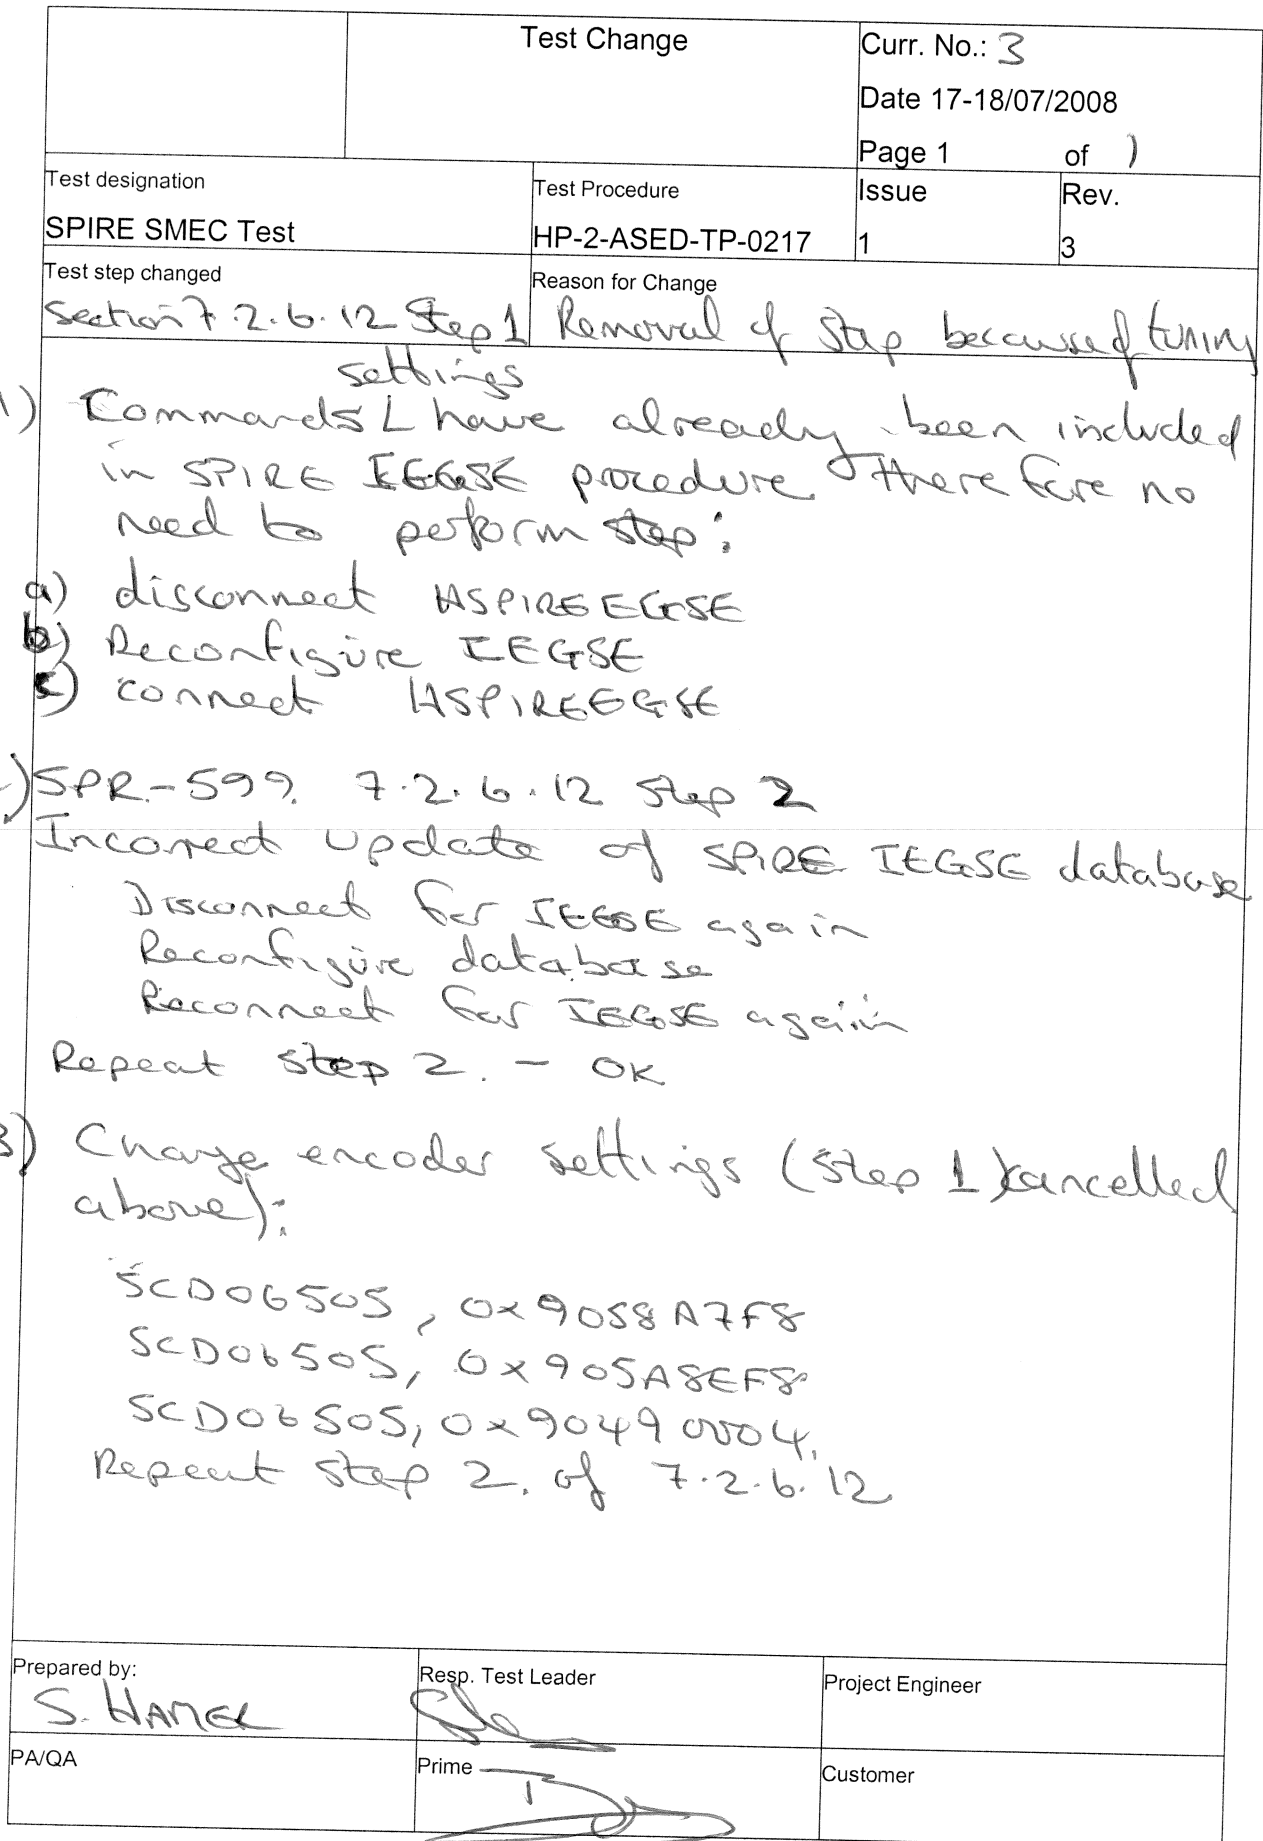 Test Change
Curr. No.: 3
Date 17-18/07/2008
Page 1 of 1
Test designation
SPIRE SMEC Test
Test Procedure
HP-2-ASED-TP-0217
Issue
1
Rev.
3
Test step changed
Section 7.2.6.12 Step 1
Reason for Change
Removal of Step because of tuning
settings
1) Commands have already been included
in SPIRE IEGSE procedure therefore no
need to perform step:
a) disconnect HSPIREEGSE
b) Reconfigure IEGSE
c) connect HSPIREEGSE
2) SPR-599. 7.2.6.12 Step 2
Incorrect update of SPIRE IEGSE database
Disconnect for IEGSE again
Reconfigure database
Reconnect for IEGSE again
Repeat Step 2. - OK
3) Change encoder settings (Step 1 cancelled
above):
SCD06505, 0x9058A7F8
SCD06505, 0x905A8EF8
SCD06505, 0x90490004.
Repeat step 2. of 7.2.6.12
Prepared by:
S. HAMEL
Resp. Test Leader
Project Engineer
PA/QA
Prime
Customer